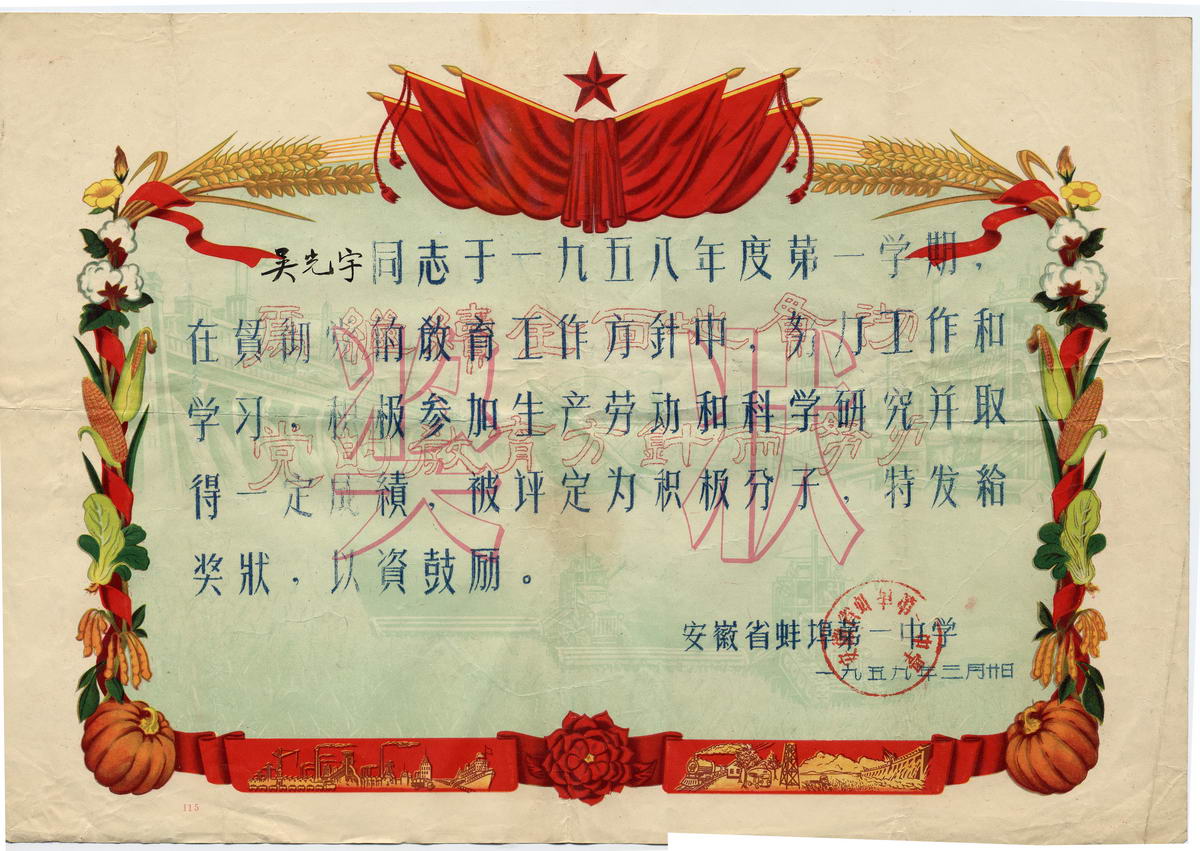 吴先宇同志于一九五八年度第一学期，
在貫彻党的教育工作方針中，努力工作和
学习，积极参加生产劳动和科学研究并取
得一定成績，被评定为积极分子，特发給
奖狀，以資鼓励。
奖狀
安徽省蚌埠第一中学
一九五九年三月廿日
115